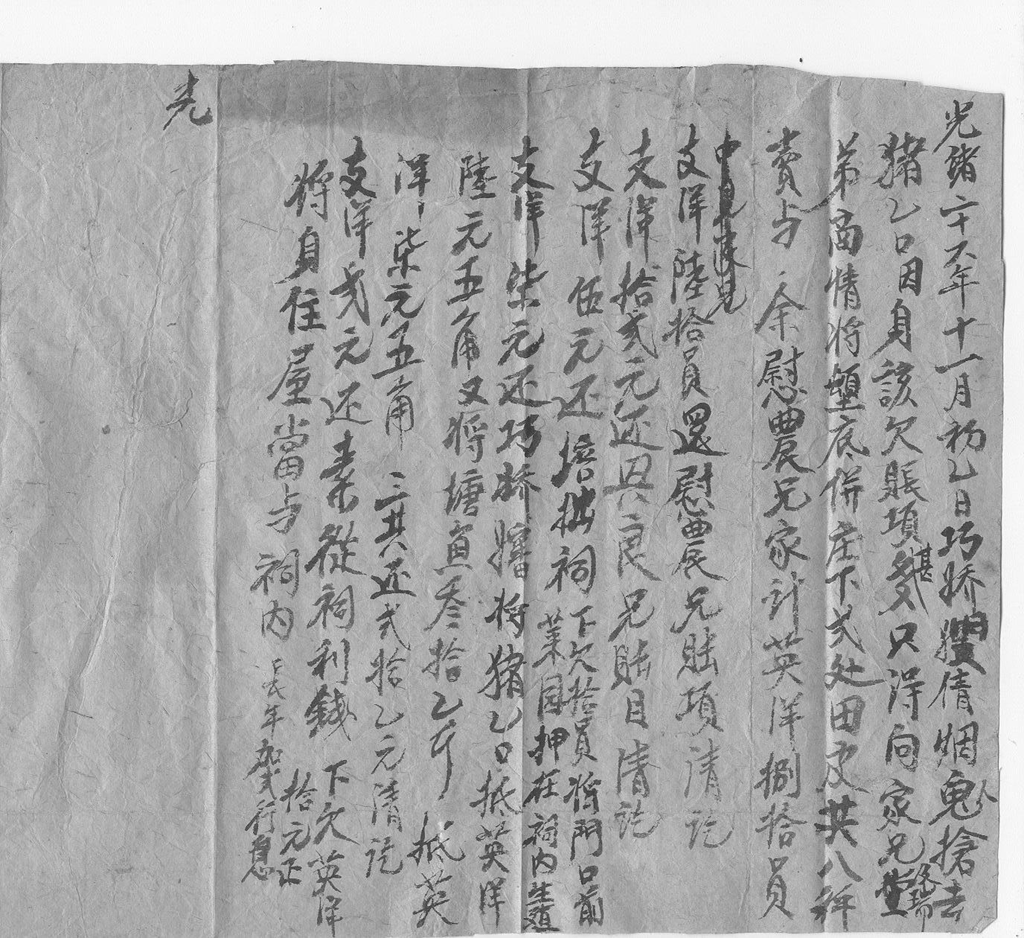 光緒二十六年十一月初乙日巧娇嬸倩烟鬼人搶去
猪乙口因身該欠賬項甚多只淂向家兄堂
弟商情将壟底併庄下弍处田皮共八秤
賣与余慰農兄家計英洋捌拾員
中見
支洋陸拾員還慰農兄賬項清訖
支洋拾弍元还具良兄賬目清訖
支洋伍元还培拙祠下欠拾員将門口前
菜园押在祠内生殖
支洋柒元还巧娇嬸将猪乙口抵英洋
陸元五角又将塘魚叁拾乙斤抵英
洋柒元五角三共还弍拾乙元清訖
支洋弍元还素從祠利錢下欠英洋
拾元正
将身住屋當与祠内長年加弍行息
光